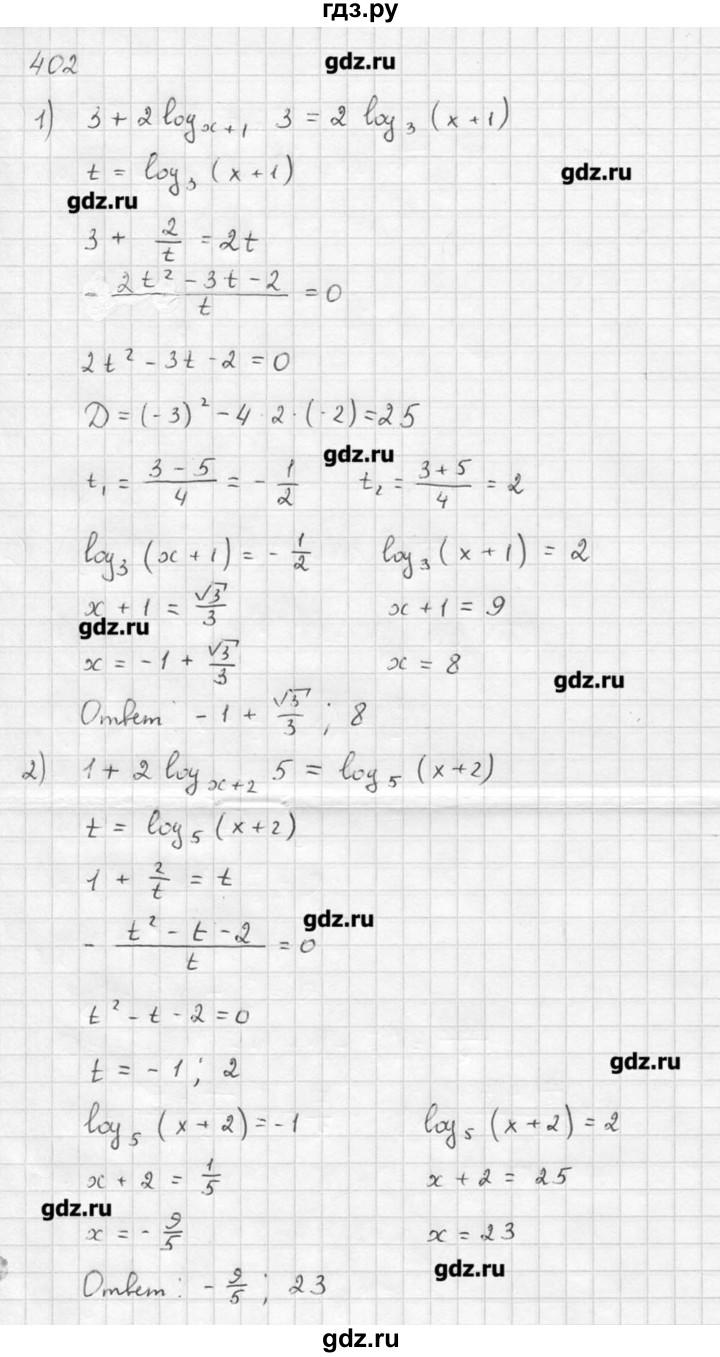 гдз.ру
402
gdz.ru
1) 3 + 2 log_{x+1} 3 = 2 log_3 (x + 1)
t = log_3 (x + 1)
gdz.ru
gdz.ru
3 + 2/t = 2t
- (2t² - 3t - 2)/t = 0
2t² - 3t - 2 = 0
D = (-3)² - 4 · 2 · (-2) = 25
gdz.ru
t_1 = (3 - 5)/4 = - 1/2 t_2 = (3 + 5)/4 = 2
log_3 (x + 1) = - 1/2 log_3 (x + 1) = 2
x + 1 = √3/3 x + 1 = 9
gdz.ru
x = -1 + √3/3 x = 8
gdz.ru
Ответ: -1 + √3/3 ; 8
2) 1 + 2 log_{x+2} 5 = log_5 (x+2)
t = log_5 (x+2)
1 + 2/t = t
gdz.ru
- (t² - t - 2)/t = 0
t² - t - 2 = 0
t = -1 ; 2
gdz.ru
log_5 (x + 2) = -1 log_5 (x+2) = 2
x + 2 = 1/5 x + 2 = 25
gdz.ru
x = - 9/5 x = 23
gdz.ru
Ответ: - 9/5 ; 23
gdz.ru